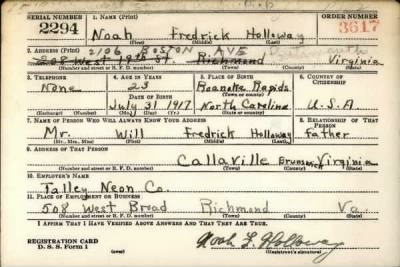 SERIAL NUMBER 1. NAME (Print) ORDER NUMBER
2294 Noah Fredrick Holloway 3617
(First) (Middle) (Last)
2. ADDRESS (Print) 2106 BOSTON AVE
208 West 19th St. Richmond Virginia
(Number and street or R. F. D. number) (Town) (County) (State)
3. TELEPHONE 4. AGE IN YEARS 5. PLACE OF BIRTH 6. COUNTRY OF CITIZENSHIP
None 23 Roanoke Rapids
DATE OF BIRTH (Town or county)
July 31 1917 North Carolina U.S.A
(Exchange) (Number) (Mo.) (Day) (Yr.) (State or country)
7. NAME OF PERSON WHO WILL ALWAYS KNOW YOUR ADDRESS 8. RELATIONSHIP OF THAT PERSON
Mr. Will Fredrick Holloway father
(Mr., Mrs., Miss) (First) (Middle) (Last)
9. ADDRESS OF THAT PERSON
Callaville Brunswick Virginia
(Number and street or R. F. D. number) (Town) (County) (State)
10. EMPLOYER'S NAME
Talley Neon Co.
11. PLACE OF EMPLOYMENT OR BUSINESS
508 West Broad Richmond Va.
(Number and street or R. F. D. number) (Town) (County) (State)
I AFFIRM THAT I HAVE VERIFIED ABOVE ANSWERS AND THAT THEY ARE TRUE.
REGISTRATION CARD
D. S. S. Form 1
Noah F. Holloway
(Registrant's signature)